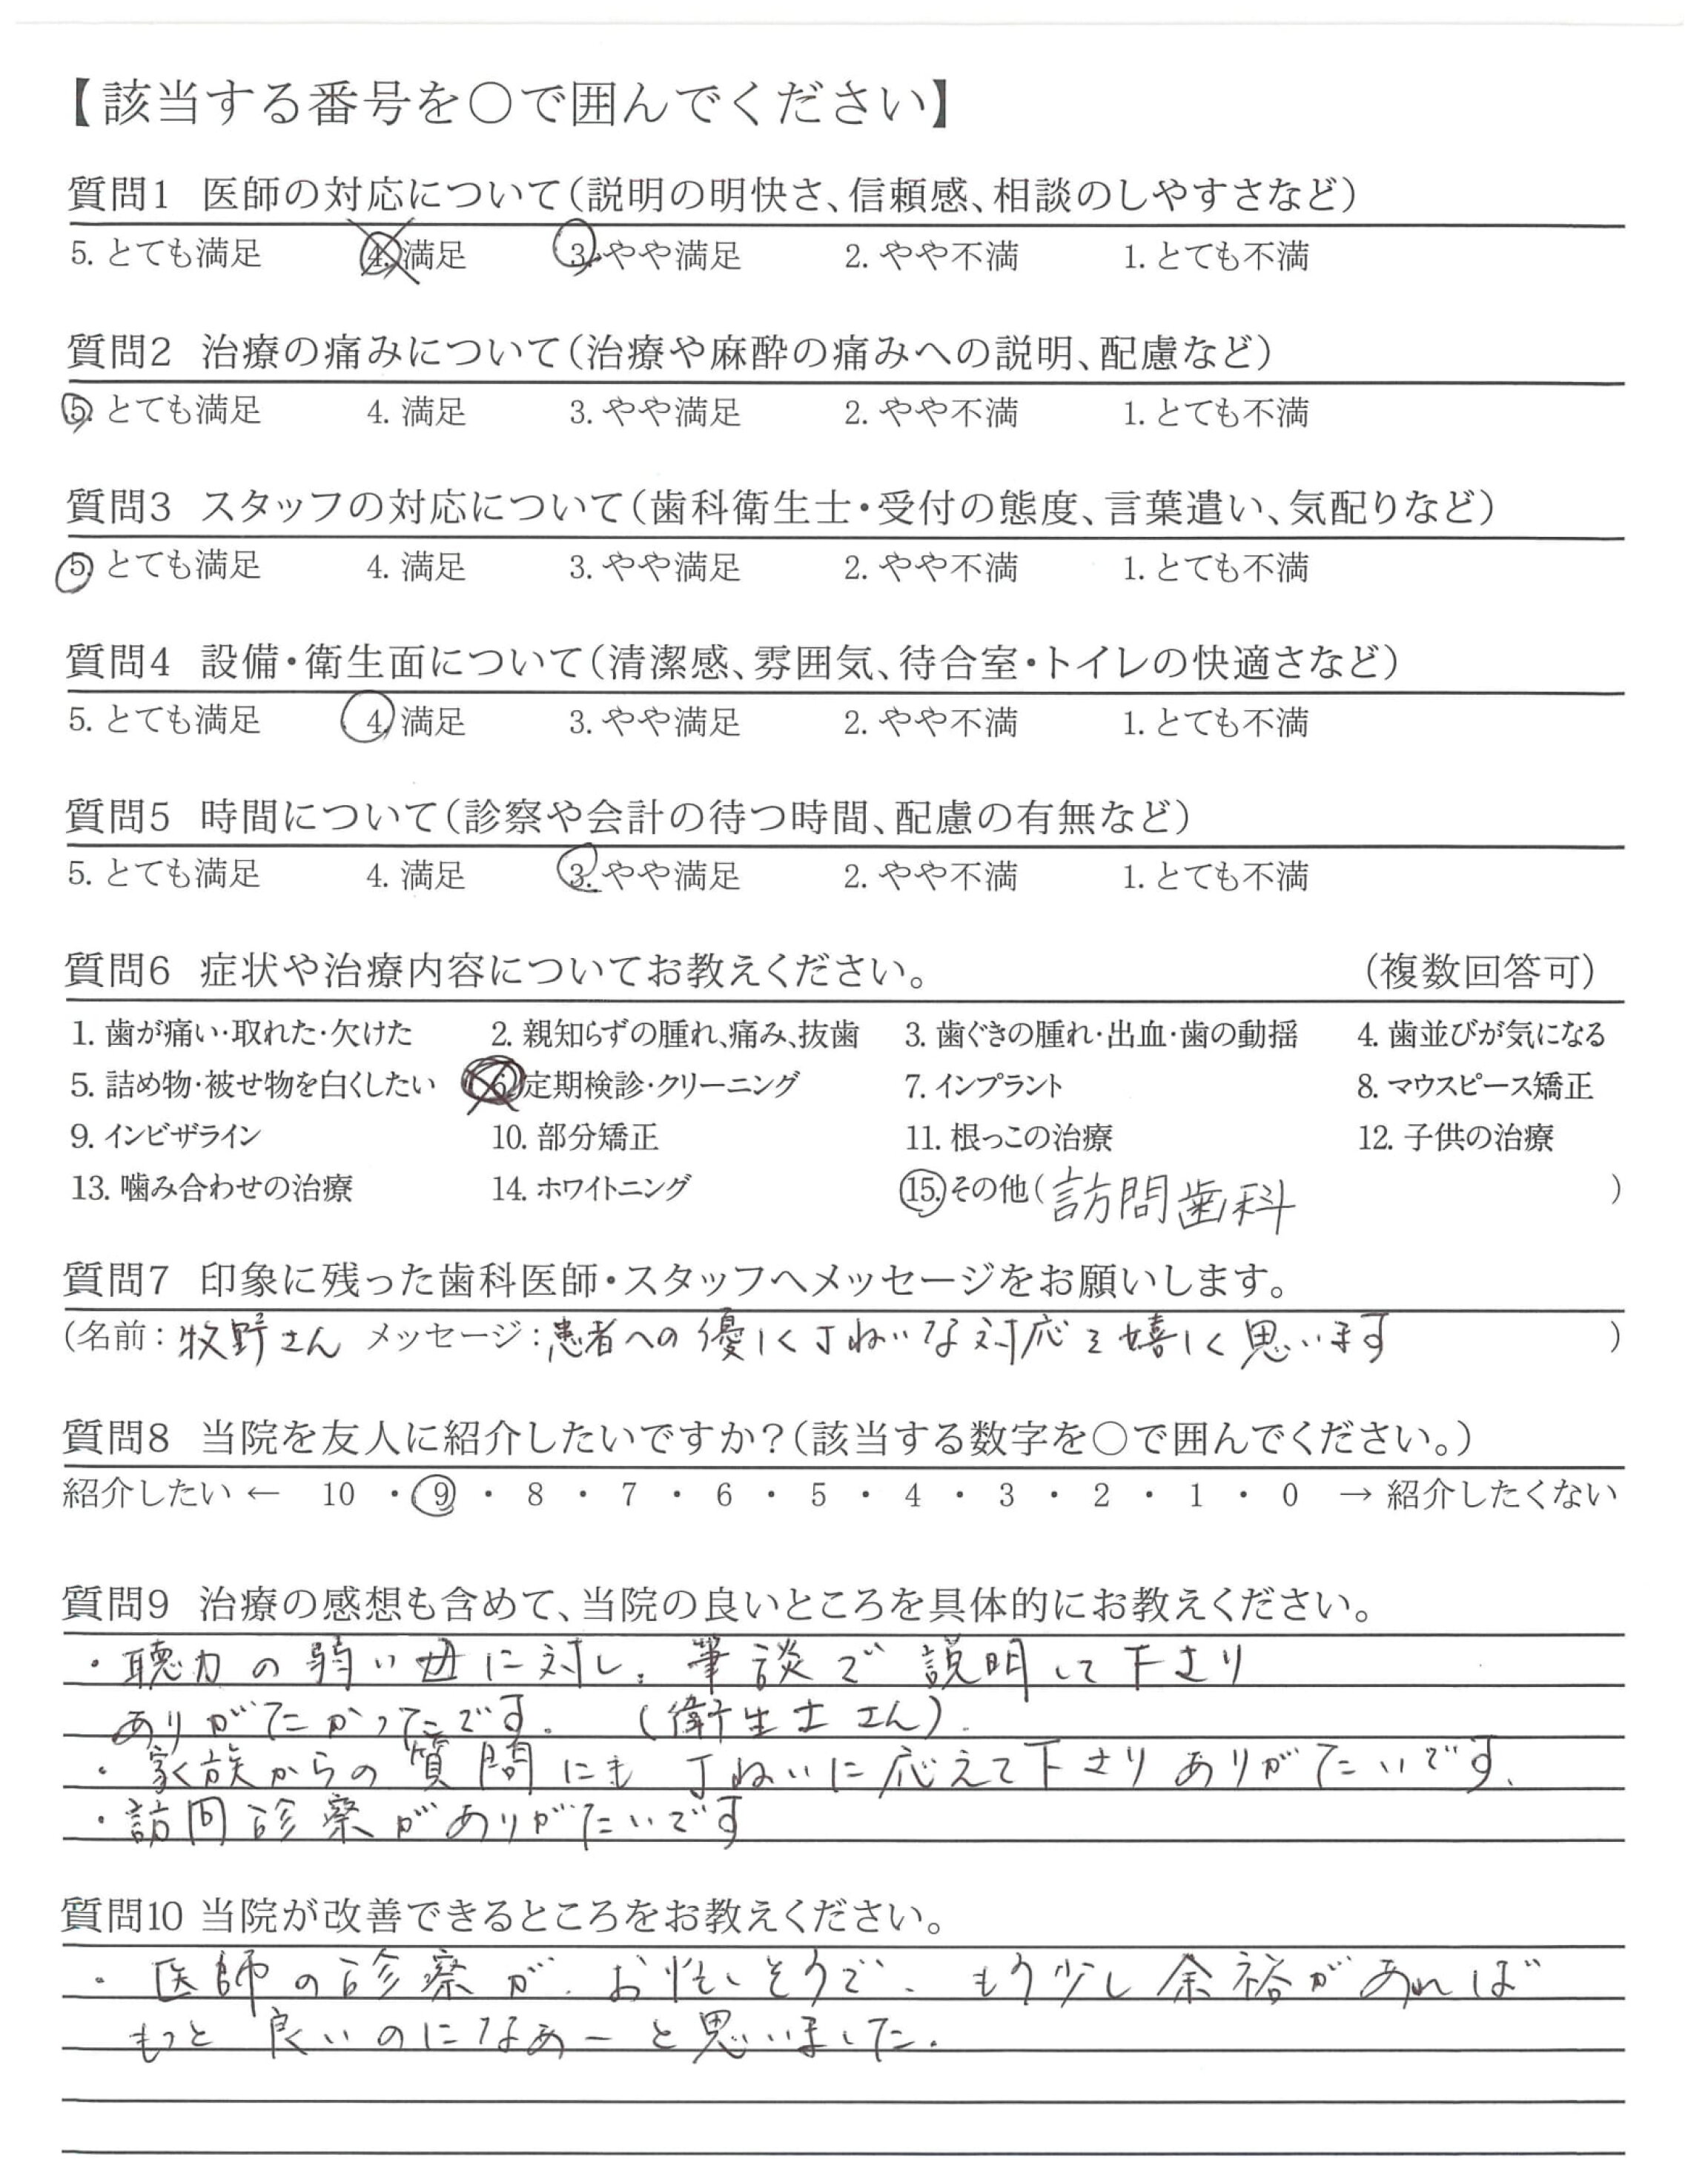 【該当する番号を○で囲んでください】
質問1 医師の対応について(説明の明快さ、信頼感、相談のしやすさなど)
5. とても満足 4. 満足 3. やや満足 2. やや不満 1. とても不満
質問2 治療の痛みについて(治療や麻酔の痛みへの説明、配慮など)
5. とても満足 4. 満足 3. やや満足 2. やや不満 1. とても不満
質問3 スタッフの対応について(歯科衛生士・受付の態度、言葉遣い、気配りなど)
5. とても満足 4. 満足 3. やや満足 2. やや不満 1. とても不満
質問4 設備・衛生面について(清潔感、雰囲気、待合室・トイレの快適さなど)
5. とても満足 4. 満足 3. やや満足 2. やや不満 1. とても不満
質問5 時間について(診察や会計の待つ時間、配慮の有無など)
5. とても満足 4. 満足 3. やや満足 2. やや不満 1. とても不満
質問6 症状や治療内容についてお教えください。 (複数回答可)
1. 歯が痛い・取れた・欠けた 2. 親知らずの腫れ、痛み、抜歯 3. 歯ぐきの腫れ・出血・歯の動揺 4. 歯並びが気になる
5. 詰め物・被せ物を白くしたい 6. 定期検診・クリーニング 7. インプラント 8. マウスピース矯正
9. インビザライン 10. 部分矯正 11. 根っこの治療 12. 子供の治療
13. 噛み合わせの治療 14. ホワイトニング 15. その他(訪問歯科 )
質問7 印象に残った歯科医師・スタッフへメッセージをお願いします。
(名前:牧野さん メッセージ:患者への優しく丁ねいな対応を嬉しく思います )
質問8 当院を友人に紹介したいですか?(該当する数字を○で囲んでください。)
紹介したい ← 10 ・ 9 ・ 8 ・ 7 ・ 6 ・ 5 ・ 4 ・ 3 ・ 2 ・ 1 ・ 0 → 紹介したくない
質問9 治療の感想も含めて、当院の良いところを具体的にお教えください。
・聴力の弱い母に対し、筆談で説明して下さり
ありがたかったです。 (衛生士さん)
・家族からの質問にも丁ねいに応えて下さりありがたいです。
・訪問診察がありがたいです
質問10 当院が改善できるところをお教えください。
・医師の診察が、お忙しそうで、もう少し余裕があれば
もっと良いのになぁーと思いました。